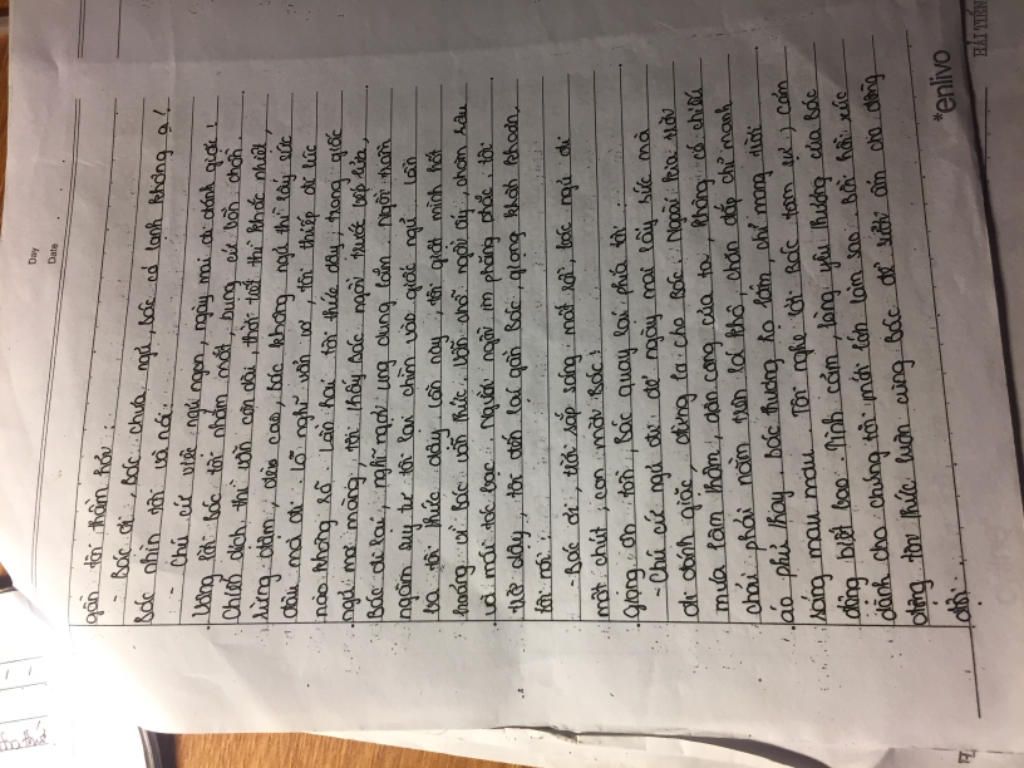 Day
Date
gần tôi thầm hỏi:
- Bác ơi, Bác chưa ngủ, Bác có lạnh không ạ!
Bác nhìn tôi và nói:
- Chú cứ việc ngủ ngon, ngày mai đi đánh giặc!
Vâng lời Bác tôi nhắm mắt, bụng cứ bồn chồn.
Chiến dịch thì vẫn còn dài, thời tiết thì khắc nhiệt,
rừng đêm, đèo cao, Bác không ngủ thì lấy sức
đâu mà đi. Lo nghĩ vẩn vơ, tôi thiếp đi lúc
nào không rõ. Lần thứ hai tôi thức dậy, trong giấc
ngủ mơ màng, tôi thấy Bác ngồi trước bếp lửa,
Bác đi lại, nghĩ ngợi, ung dung lắm. Ngồi thần
ngần suy tư tôi lại chìm vào giấc ngủ. Lần
ba tôi thức dậy, lần này, tôi giật mình hốt
hoảng vì Bác vẫn thức. Vẫn như ngồi ấy, chòm râu
và mái tóc bạc. Người ngồi im phăng phắc, tôi
trở dậy, tôi đến lại gần Bác, giọng khích khoản,
tôi nói:
- Bác ơi, trời sắp sáng mất rồi, Bác ngủ đi
một chút, con mời Bác!
Giọng ôn tồn, Bác quay lại phía tôi:
- Chú cứ ngủ đi để ngày mai lấy sức mà
đi đánh giặc, đừng lo cho Bác. Ngoài kia trời
mưa lâm thâm, dân công của ta, không có chiếu
chăn phải nằm trên lá khô, chăn đắp chỉ manh
áo phủ thay. Bác thương họ lắm, chỉ mong trời
sáng mau mau. Tôi nghe lời Bác tâm sự, cảm
động biết bao. Tình cảm, lòng yêu thương của Bác
dành cho chúng tôi mới lớn làm sao. Bồi hồi xúc
động tôi thức luôn cùng Bác để sưởi ấm cho đồng
đội.
*enlivo
HẢI TIẾN